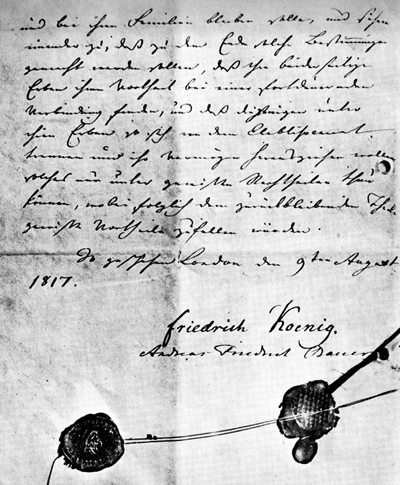 und bei ihren Familien bleiben sollen, und sichern
einander zu, daß zu dem Ende solche Bestimmungen
gemacht werden sollen, daß ihre beiderseitige
Erben ihren Vortheil bei einer fortdauernden
Verbindung finden, und daß diejenigen unter
ihren Erben so sich von dem Etablissement
trennen und ihr Vermögen herausziehen wollen
solches nur unter gewisse Nachtheilen thun
können, wobei folglich den zurückbleibenden Theil
gewisse Vortheile zufallen würden.
So geschehen London den 9ten August
1817.
Friedrich Koenig.
Andreas Friedrich Bauer